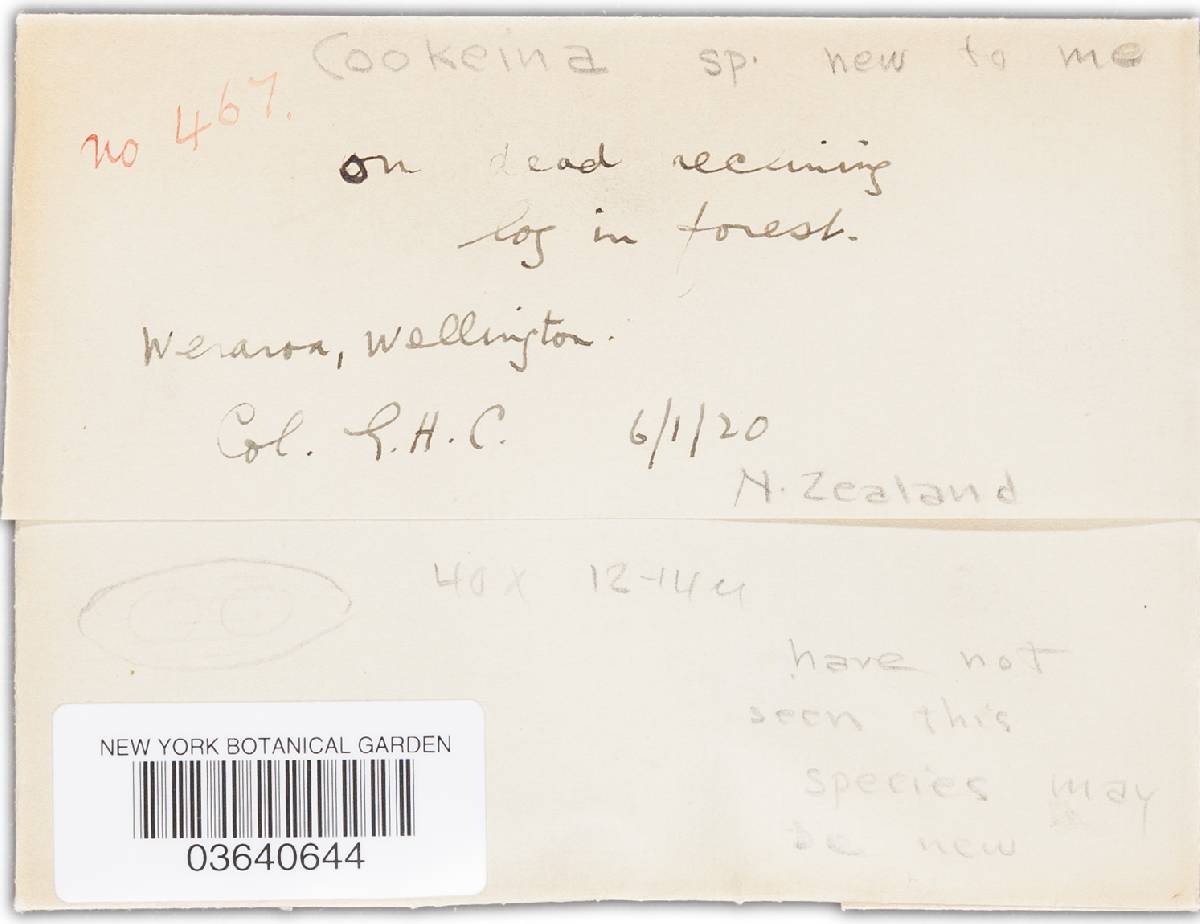 Cookeina sp. new to me
no 467.
on dead reclining
log in forest.
Weraroa, Wellington.
Col. G.H.C. 6/1/20
N. Zealand
40 x 12-14 µ
have not
seen this
species may
be new
NEW YORK BOTANICAL GARDEN
03640644